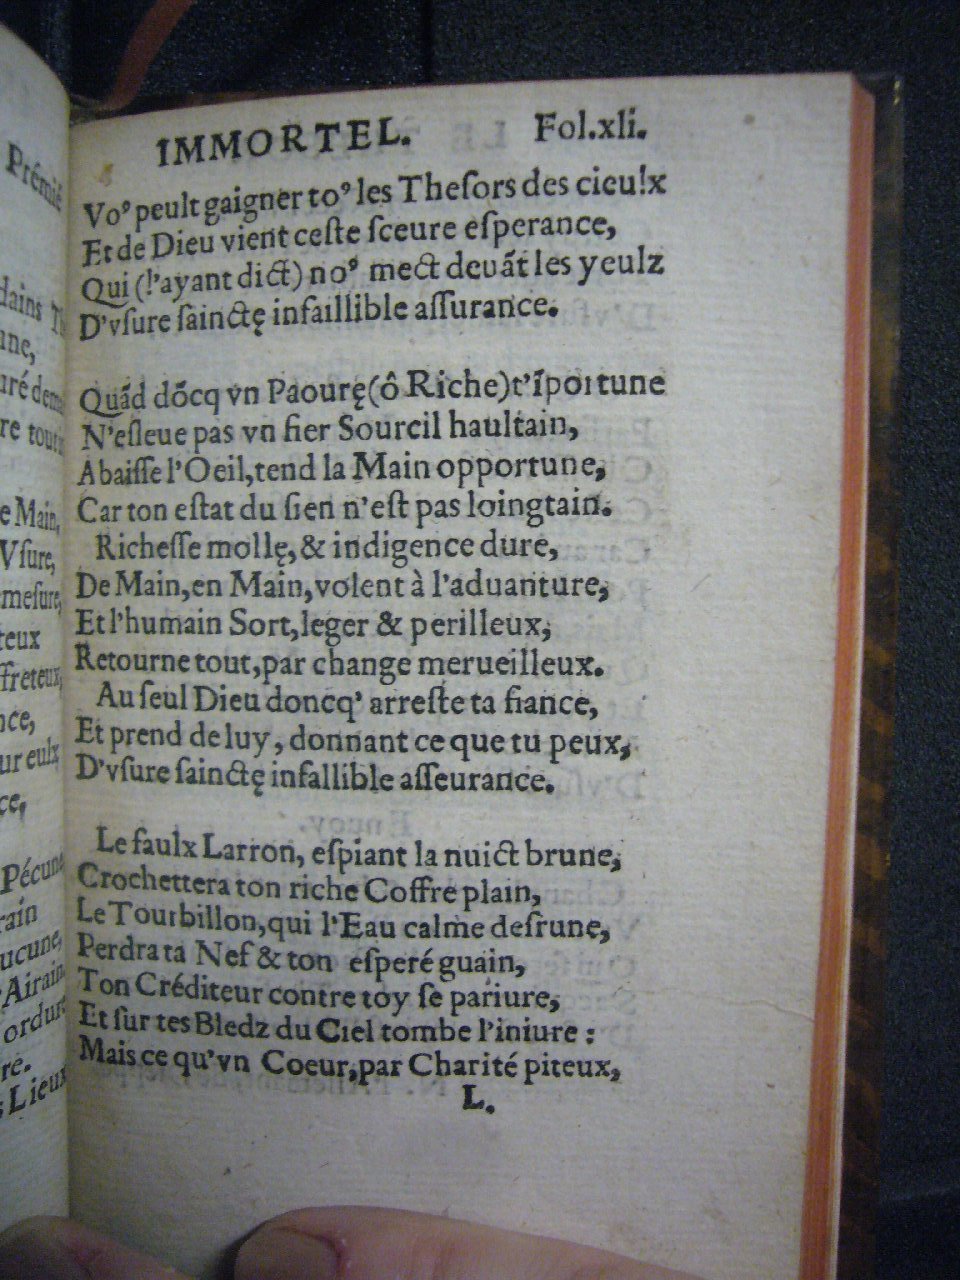 Prémié
dains
une,
uré dem
re tour
e Main,
Vsure,
mesure,
teux
ffreteux,
nce,
ureulx
ce,
Pécune
rain
ucune,
Airain
ordure
re.
s Lieux
IMMORTEL. Fol.xli.
Vo⁹ peult gaigner to⁹ les Theſors des cieulx
Et de Dieu vient ceſte ſceure eſperance,
Qui (l'ayant dict) no⁹ mect deuãt les yeulz
D'vſure ſainctę infaillible aſſurance.
Quãd dõcq vn Paourę (ô Riche) t'ĩportune
N'eſleue pas vn fier Sourcil haultain,
Abaiſſe l'Oeil, tend la Main opportune,
Car ton eſtat du ſien n'eſt pas loingtain.
Richeſſe mollę, & indigence dure,
De Main, en Main, volent à l'aduanture,
Et l'humain Sort, leger & perilleux,
Retourne tout, par change merueilleux.
Au ſeul Dieu doncq' arreſte ta fiance,
Et prend de luy, donnant ce que tu peux,
D'vſure ſainctę infallible aſſeurance.
Le faulx Larron, eſpiant la nuict brune,
Crochettera ton riche Coffre plain,
Le Tourbillon, qui l'Eau calme deſrune,
Perdra ta Nef & ton eſperé guain,
Ton Créditeur contre toy ſe pariure,
Et ſur tes Bledz du Ciel tombe l'iniure :
Mais ce qu'vn Coeur, par Charité piteux,
L.